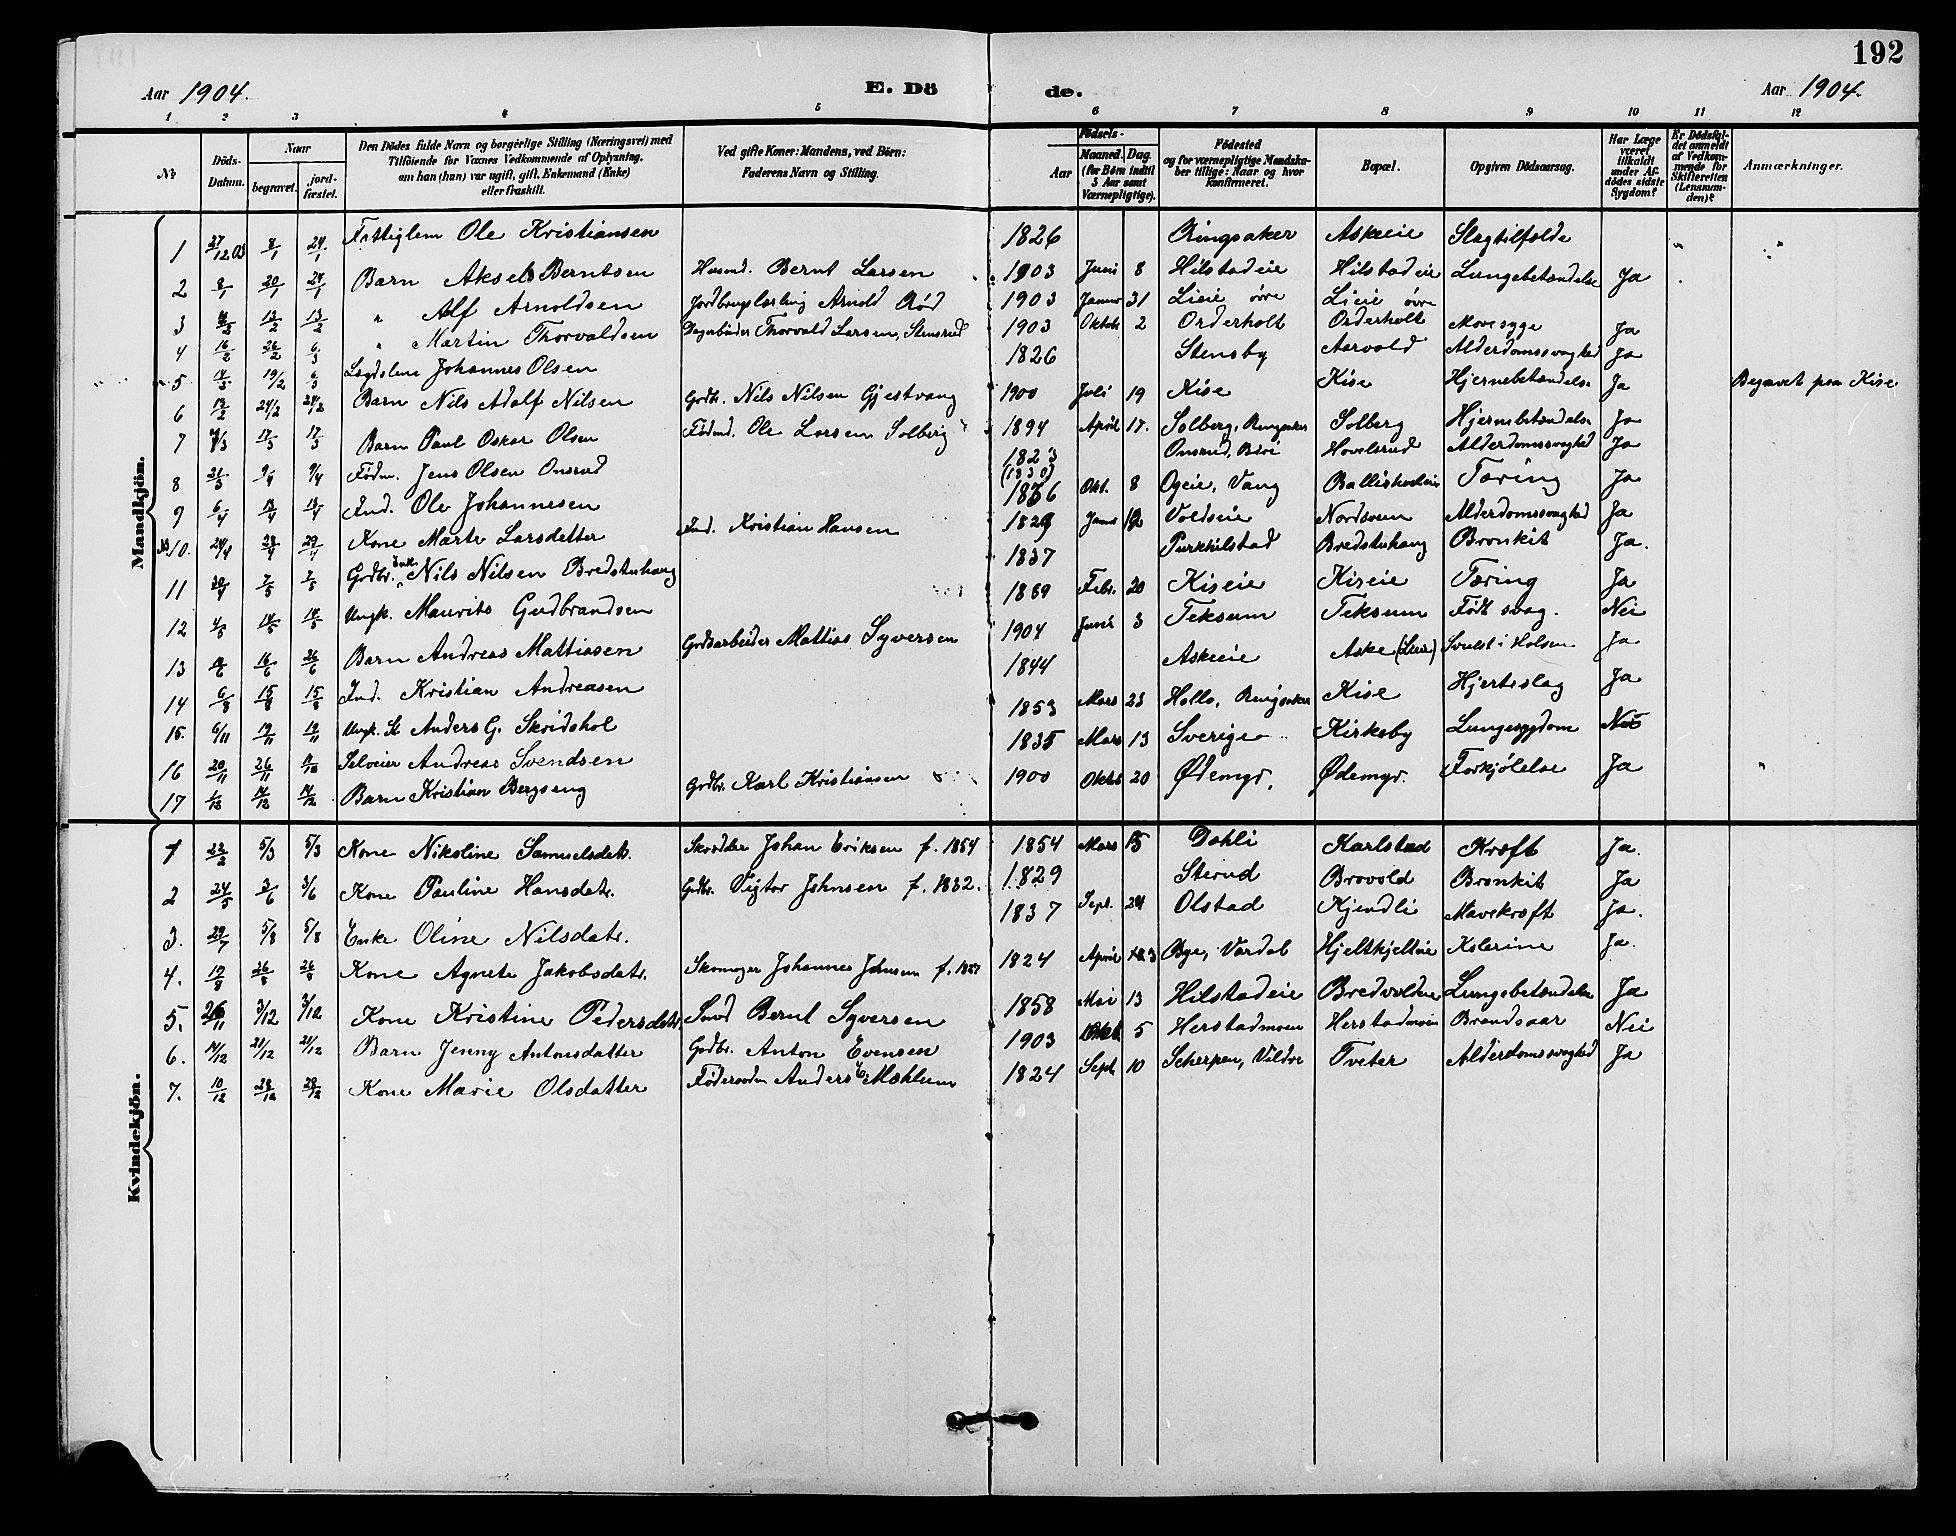 192
Aar 1904. E. Dö de. Aar 1904.
1 2 3 4 5 6 7 8 9 10 11 12
№ Döds-Datum. Naar begravet. jord-fæstet. Den Dödes fulde Navn og borgerlige Stilling (Næringsvei) med Tilföiende for Voxnes Vedkommende af Oplysning, om han (hun) var ugift, gift, Enkemand (Enke) eller fraskilt. Ved gifte Koner: Mandens, ved Börn: Faderens Navn og Stilling. Födsels- Aar Maaned. Dag (for Börn indtil 5 Aar samt Værnepligtige). Födested og for værnepligtige Mandskaber tillige: Naar og hvor konfirmeret. Bopæl. Opgiven Dödsaarsag. Har Læge været tilkaldt under Afdödes sidste Sygdom? Er Dödsfaldet anmeldt af Vedkommende for Skifteretten (Lensmanden)? Anmærkninger.
Mandkjön.
1 27/12 03 8/1 24/1 Fattiglem Ole Kristiansen 1826 Ringsaker Askeie Slagtilfælde
2 8/1 20/1 24/1 Barn Aksel Berntsen Husmd. Bernt Larsen 1903 Juni 8 Hilstadeie Hilstadeie Lungebetændelse Ja
3 13/2 13/2 " Alf Arnoldsen Arnold Rød 1903 Januar 31 Lieie øvre Lieie øvre
4 16/2 26/2 6/3 " Martin Thorvaldsen Thorvald Larsen, Stensrud 1903 Oktob 2 Orderholt Orderholt Mavesyge Ja
5 19/2 6/3 Lægdslem Johannes Olsen 1826 Stensby Aarvold Alderdomssvaghed Ja
6 13/2 24/2 24/2 Barn Nils Adolf Nilsen Gdbr. Nils Nilsen Gjestvang 1900 Juli 19 Kise Kise Hjernebetændelse Ja Begravet paa Kise
7 17/3 17/3 Barn Paul Oskar Olsen Fødmd. Ole Larsen Solberg 1894 April 17. Solberg, Ringsaker Solberg Hjernebetændelse Ja
8 31/3 9/4 9/4 Fødm. Jens Olsen Onsrud 1823 (1830) Onsrud, Hovelsrud Alderdomssvaghed Ja
9 6/4 13/4 13/4 Ind. Ole Johannesen 1836 Okt. 8 Ogeie, Vang Tæring Ja
10. 24/4 29/4 29/4 Kone Marte Larsdatter Ind. Kristian Hansen 1829 Januar Voldseie Nordsveen Alderdomssvaghed Ja
11 30/4 7/5 7/5 Grdbr. Enk. Nils Nilsen Bredstuhaug 1837 Purkhilstad Bredstuhaug Bronkit Ja.
12 4/5 14/5 14/5 Ungk. Maurits Gudbrandsen 1869 Febr. 20 Kiseie Kiseie Tæring Ja
13 16/6 26/6 Barn Andreas Mattiasen Grdsarbeider Mattias Syversen 1904 Juni 3 Teksum Teksum Født svag. Nei
14 6/8 15/8 15/8 Ind. Kristian Andreasen 1844 Askeie Aske (Leie) Svulst i Halsen Ja
15. 6/11 12/11 12/11 Ungk. Anders G. Skredshol 1853 Mars 23 Holla, Ringsaker Kise Hjerteslag Ja
16 20/11 26/11 Selveier Andreas Svendsen 1835 Mars 13 Sverige Kirkeby Lungesygdom Nei
17 1/12 14/12 14/12 Barn Kristian Bergseng Grdbr. Karl Kristiansen 1900 Oktob 20 Ødemyr. Ødemyr. Forkjølelse Ja
Kvindekjön.
1 23/2 5/3 5/3 Kone Nikoline Samuelsdatr. Skrædder Johan Eriksen f. 1854 1854 Mars 15 Dahli Karlstad Kræft Ja.
2 24/5 3/6 3/6 Kone Pauline Hansdatr. Grdbr. Vigtor Johnsen f. 1832. 1829 Sterud Brovold Bronkit Ja
3. 29/7 5/8 5/8 Enke Oline Nilsdatr. 1837 Sept. 24 Olstad Kjendli Mavekræft Ja.
4. 17/8 26/8 26/8 Kone Agnete Jakobsdatr. Skomager Johannes Johnsen f. 1827 1824 April Bye, Vardal Hjeltkjelleie Kolerine Ja.
5. 26/11 3/12 3/12 Kone Kristine Pedersdatr. Smed Bernt Syversen 1858 Mai 13 Hilstadeie Bredvoldeie Lungebetændelse Ja
6. 14/12 21/12 21/12 Barn Jenny Antonsdatter Grdbr. Anton Evensen 1903 Okt 5 Herstadmoen Herstadmoen Brandsaar Nei
7. 10/12 28/12 28/12 Kone Marie Olsdatter Føderaadm Anders E. Mæhlum 1824 Sept 10 Skarpen, Veldre Tveter Alderdomssvaghed Ja